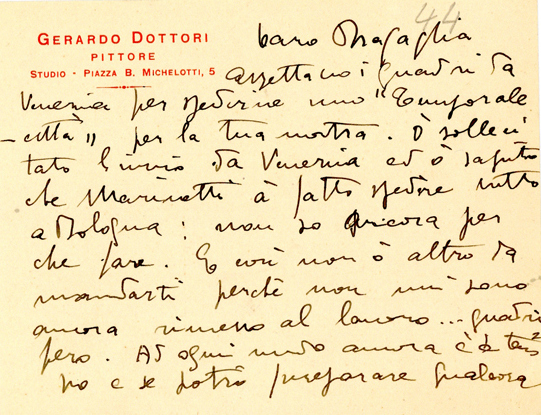 44
GERARDO DOTTORI
PITTORE
STUDIO - PIAZZA B. MICHELOTTI, 5
Caro Bragaglia
aspettavo i quadri da
Venezia per spedirne uno "Temporale
-città" per la tua mostra. Ò solleci
tato l'invio da Venezia ed ò saputo
che Marinetti à fatto spedire tutto
a Bologna: non so ancora per
che fare. E così non ò altro da
mandarti perché non mi sono
ancora rimesso al lavoro... quadri
fero. Ad ogni modo ancora c'è tem
po e se potrò preparare qualcosa